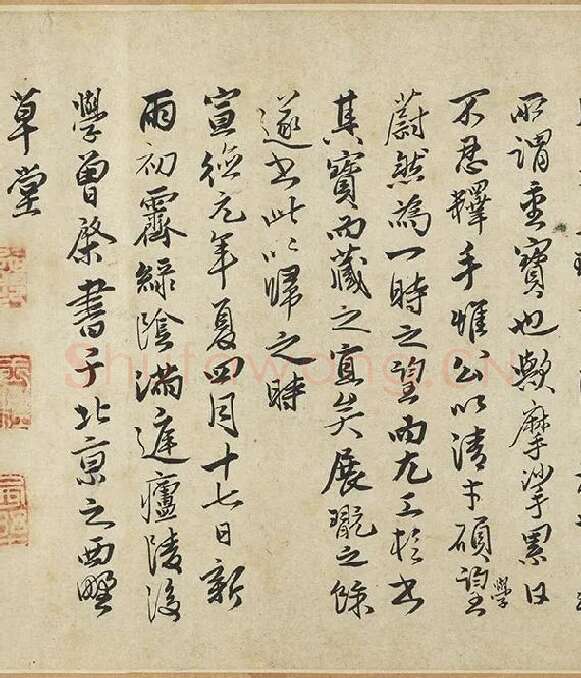 所謂重寶也歟摩挲累日
不忍釋手惟公以清才碩望學
蔚然為一時之望而尤工於書
其寶而藏之宜矣展翫之餘
遂書此以歸之時
宣德元年夏四月十七日新
雨初霽綠陰滿庭廬陵後
學曾棨書于北京之西墅
草堂
shufawang.CN